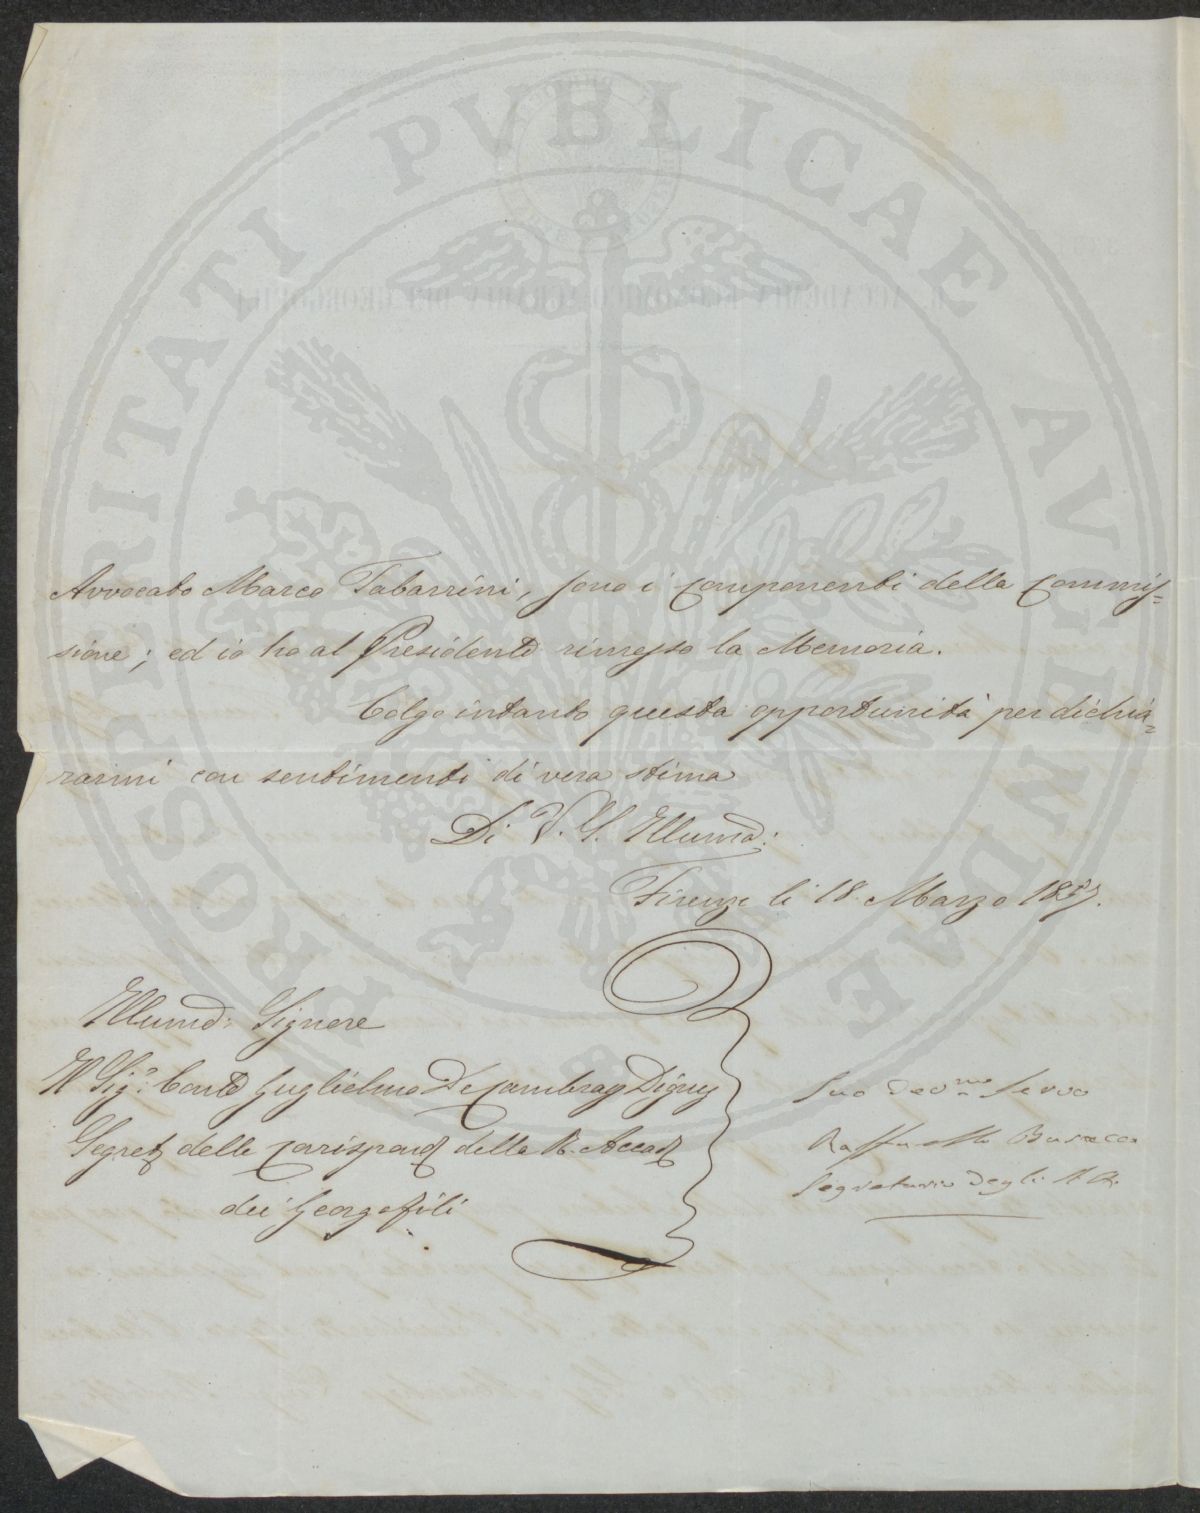 PROSPERITATI PVBLICAE AVGENDAE
Avvocato Marco Tabarrini, sono i componenti della Commis=
sione; ed io ho al Presidente rimesso la Memoria.
Colgo intanto questa opportunità per dichia=
rarmi con sentimenti di vera stima
Di V. S. Illumã:
Firenze li 18. Marzo 1857.
Illumã: Signore
Il Sig.r Conte Guglielmo De Cambray Digny
Segret delle Corrispond della R. Accad
dei Georgofili
Suo Dev.mo Servo
Raffaello Busacca
Segretario degli A